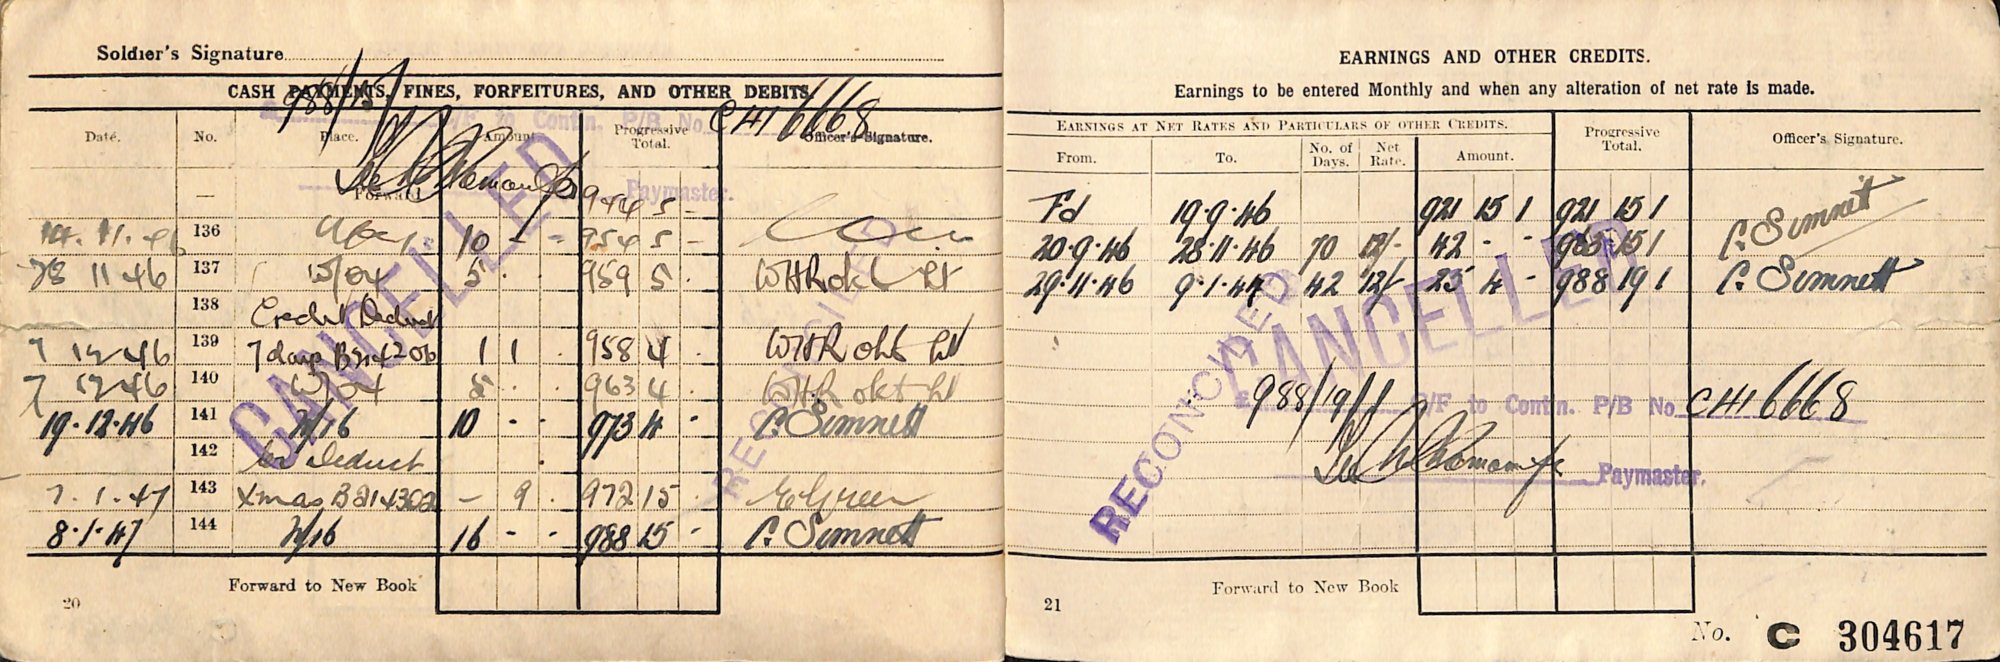 Soldier's Signature
CASH PAYMENTS, FINES, FORFEITURES, AND OTHER DEBITS.
988/15/
C/F to Contin. P/B No. CH16668
Date. No. Place. Amount Progressive Total. Officer's Signature.
Paymaster.
— Forward 944 5 -
14. 11. 46 136 10 - - 954 5 -
28 11 46 137 5 . . 959 5 .
138 Credit Deduct
7 12 46 139 7 days 1 1 . 958 4 .
7 12 46 140 5 . . 963 4 .
19.12.46 141 2/16 10 - - 973 4 - C. Simnett
142 Deduct
7. 1. 47 143 Xmas B214302 - 9 . 972 15 . E Green
8.1.47 144 2/16 16 - - 988 15 - C. Simnett
CANCELLED
RECONCILED
Forward to New Book
20
EARNINGS AND OTHER CREDITS.
Earnings to be entered Monthly and when any alteration of net rate is made.
EARNINGS AT NET RATES AND PARTICULARS OF OTHER CREDITS. Progressive Total. Officer's Signature.
From. To. No. of Days. Net Rate. Amount.
Fd 19.9.46 921 15 1 921 15 1
20.9.46 28.11.46 70 12/- 42 - - 963 15 1 C. Simnett
29.11.46 9.1.47 42 12/- 25 4 - 988 19 1 C. Simnett
CANCELLED
RECONCILED
988/19/1 C/F to Contin. P/B No. CH16668
Paymaster.
Forward to New Book
21
No. C 304617